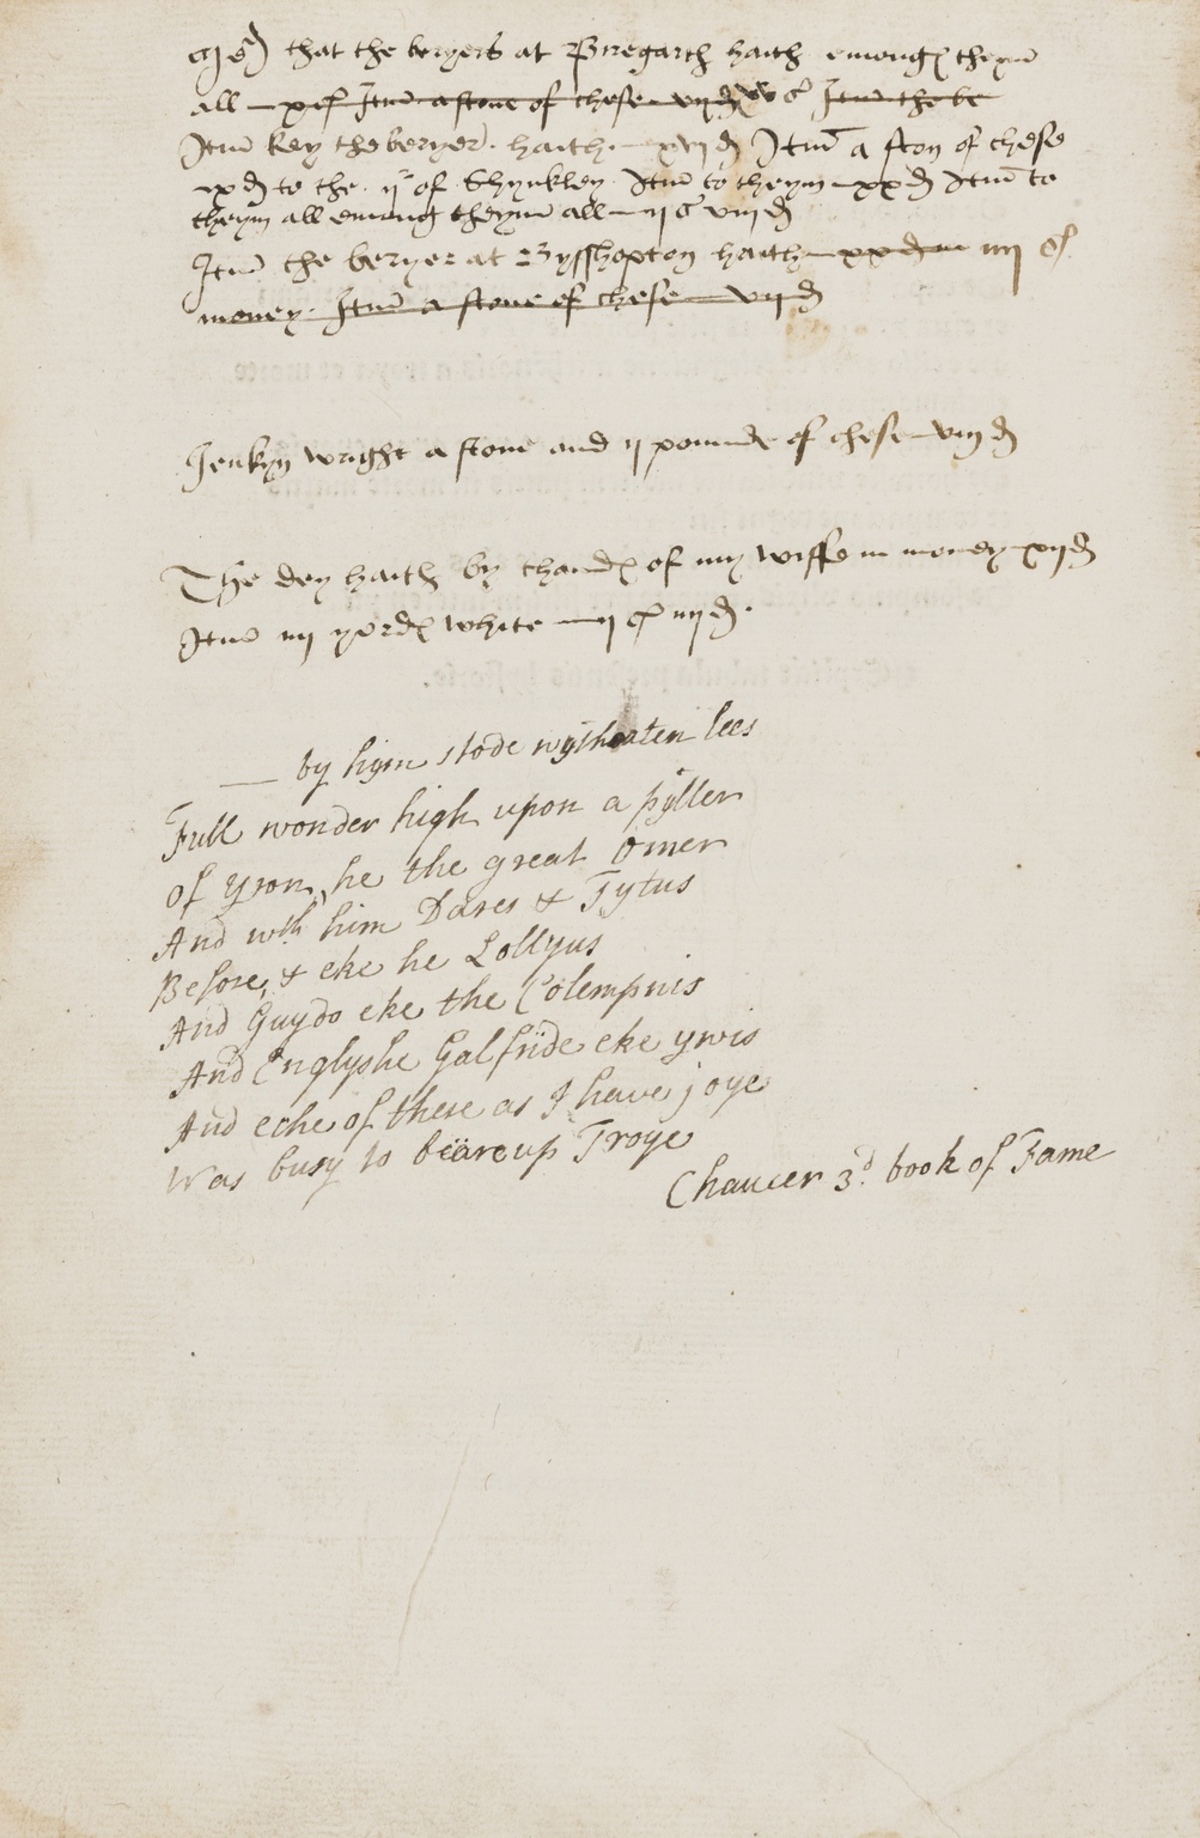 that the beryers at haith emong theym
all — x s Itm a stone of chese — vij d v s Itm the be
Itm key the beryer haith — xvj d Itm a ston of chese
ix d to the ij of Shynkley Itm to theym — xx d Itm to
theym all emong theym all — ij s viij d
Itm the beryer at Bysshopton haith — xx d in iiij s
money. Itm a stone of chese — vij d
Jenkyn wright a stone and ij pounde of chese — viij d
The dey haith by thand of my wiffe in money — xij d
Itm iiij yerd white — ij s iiij d.
— by hym stode wythouten lees
Full wonder high upon a pyller
Of yron, he the great Omer
And wth him Dares & Tytus
Before, & eke he Lollyus
And Guydo eke the Colempnis
And Englyshe Galfride eke ywis
And eche of these as I have joye
Was busy to beare up Troye
Chaucer 3d. book of Fame